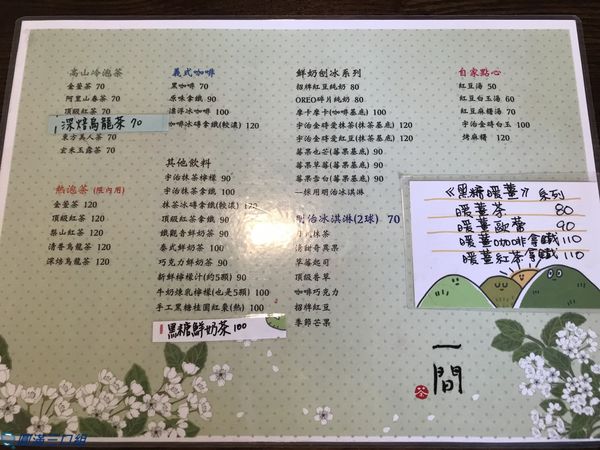 高山冷泡茶
金萱茶 70
阿里山春茶 70
頂級紅茶 70
深焙烏龍茶 70
東方美人茶 70
玄米玉露茶 70
熱泡茶 (限內用)
金萱茶 120
頂級紅茶 120
梨山紅茶 120
清香烏龍茶 120
深焙烏龍茶 120
義式咖啡
黑咖啡 70
原味拿鐵 90
漂浮冰咖啡 100
咖啡冰磚拿鐵(較濃) 120
其他飲料
宇治抹茶檸檬 90
宇治抹茶拿鐵 90
抹茶冰磚拿鐵(較濃) 120
頂級紅茶拿鐵 90
鐵觀音鮮奶茶 90
泰式鮮奶茶 90
巧克力鮮奶茶 90
新鮮檸檬汁(約5顆) 90
牛奶煉乳檸檬(也是5顆) 100
手工黑糖桂圓紅棗(熱) 100
黑糖鮮奶茶 100
鮮奶刨冰系列
招牌紅豆純奶 80
OREO碎片純奶 80
摩卡摩卡(咖啡基底) 80
宇治金時愛抹茶(抹茶基底) 80
宇治金時愛紅豆(抹茶基底) 80
莓果也芒(莓果基底) 80
莓果草莓(莓果基底) 80
莓果雪台(莓果基底) 80
—採用明治冰淇淋
明治冰淇淋(2球) 70
日式抹茶
清甜奇異果
草莓起司
頂級香草
咖啡巧克力
招牌紅豆
季節芒果
自家點心
紅豆湯 50
紅豆白玉湯 60
紅豆麻糬湯 70
宇治金時白玉 100
烤麻糬 120
《黑糖暖薑》系列
暖薑茶 80
暖薑歐蕾 90
暖薑咖啡拿鐵 110
暖薑紅茶拿鐵 110
一間
茶
圓滿一口組